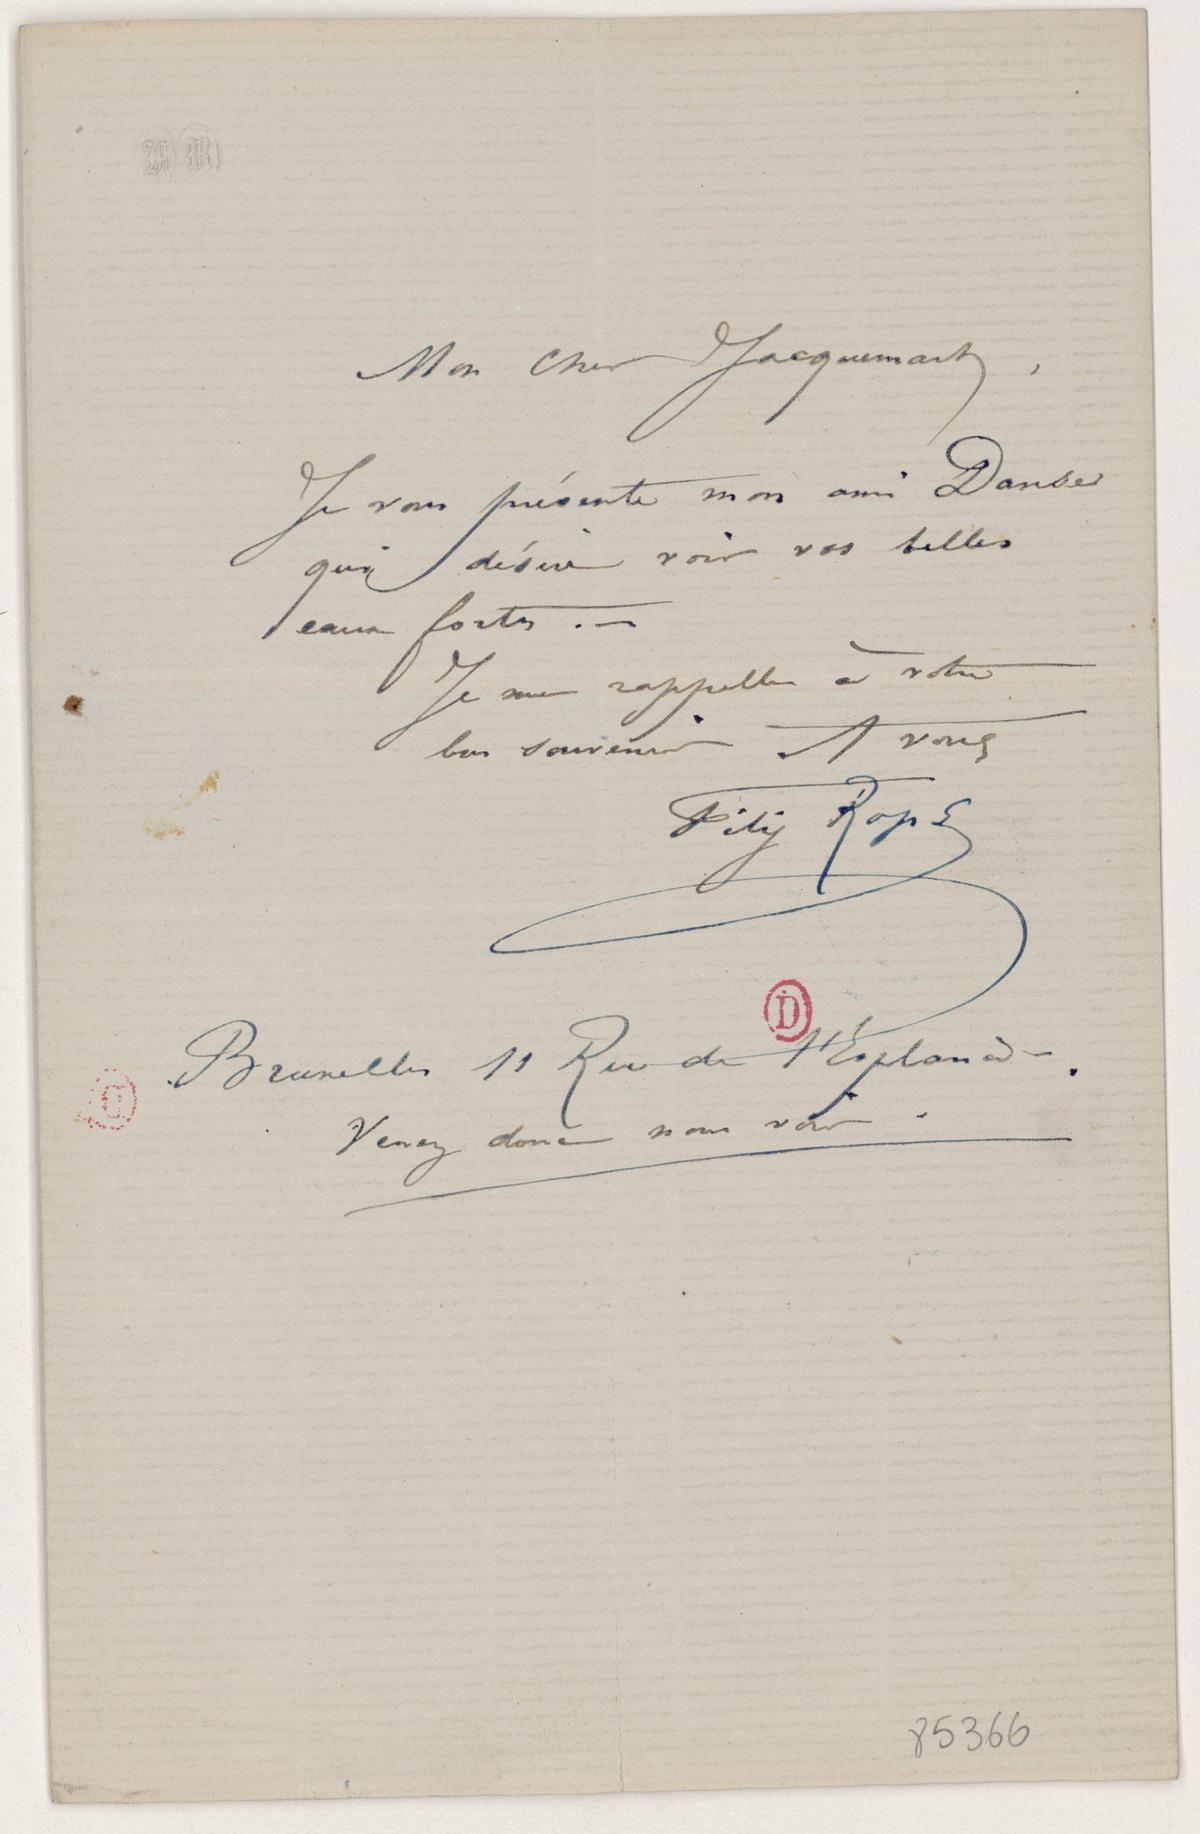 FR
Mon Cher Jacquemart,
Je vous présente mon ami Danse
qui désire voir vos belles
eaux fortes . —
Je me rappelle à votre
bon souvenir A vous
Rops
D
Bruxelles 11 Rue de l'Esplanade .
D
Venez donc nous voir .
85366